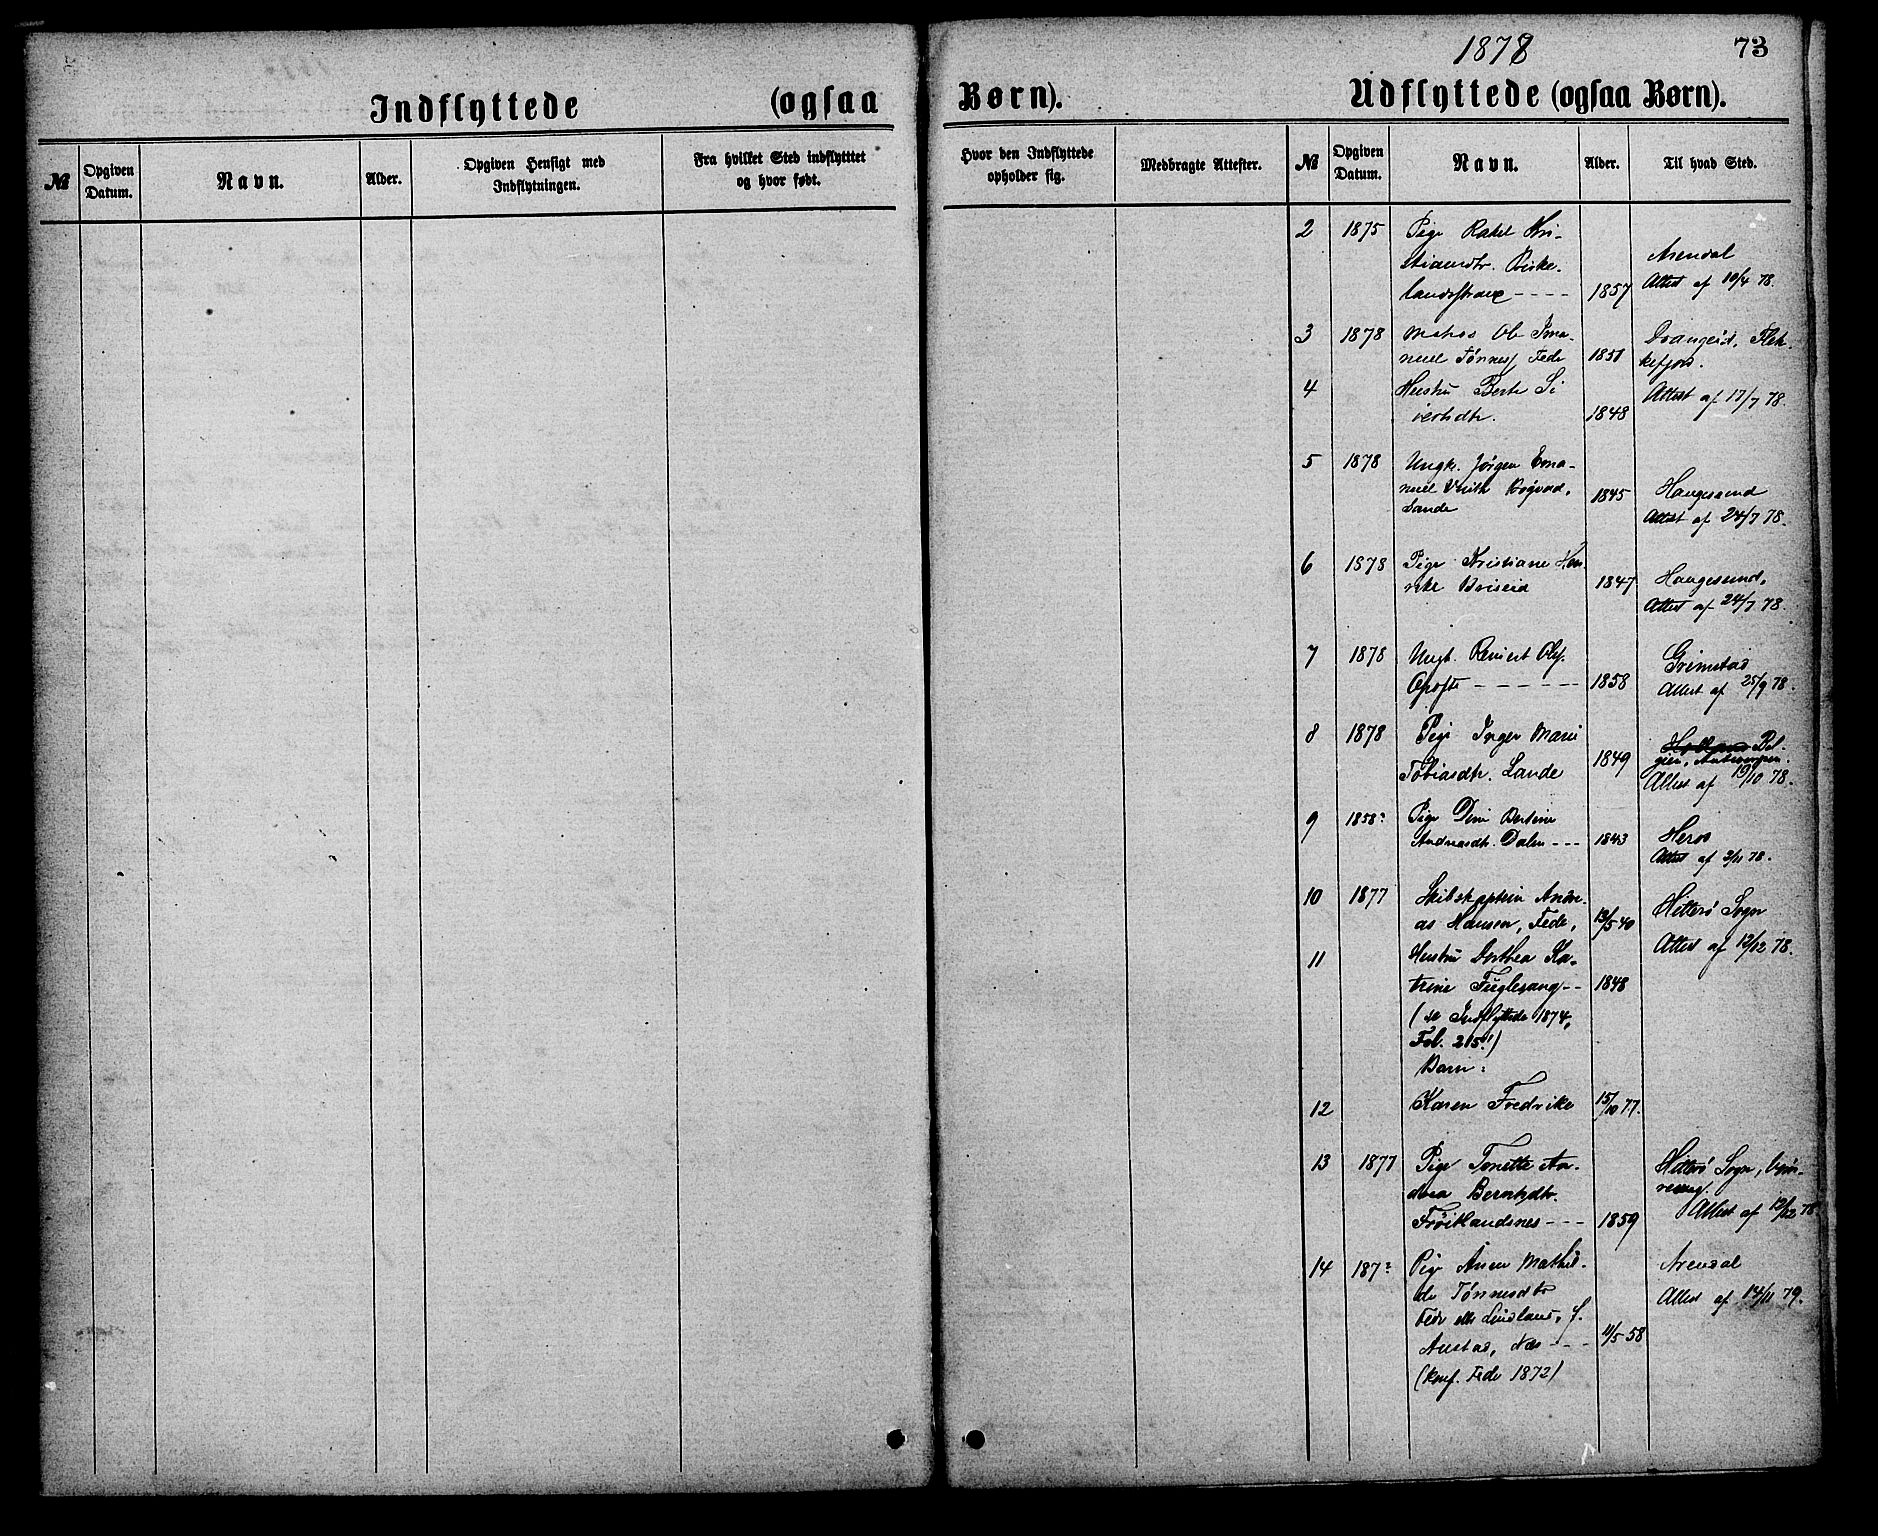 1878
73
Indflyttede (ogsaa Børn).
Udflyttede (ogsaa Børn).
№
Opgiven Datum.
Navn.
Alder.
Opgiven Hensigt med Indflytningen.
Fra hvilket Sted indflytttet og hvor født.
Hvor den Indflyttede opholder sig.
Medbragte Attester.
№
Opgiven Datum.
Navn.
Alder.
Til hvad Sted.
2 1875 Pige Rakel Kri-
stiansdtr.
1857
Arendal
Attest af 10/4 78.
3 1878 Matros Ole Ema-
nuel Tønness. Fede 1851
Flek-
kefjord.
4 Hustru Berte Si
vertsdtr. 1848
Attest af 17/7 78.
5 1878 Ungk. Jørgen Ema-
nuel
Lande
1845 Haugesund
Attest af 24/7 78.
6 1878 Pige Kristiane Hen
rike Briseid 1847
Haugesund,
Attest af 24/7 78.
7 1878 Ungk. Reinert Ols.
Opofte - - - - - - - 1858
Grimstad
Attest af 25/9 78.
8 1878 Pige Inger Marie
Tobiasdtr. Lande 1849
Holland Bel-
gien, Antwerpen.
Attest af 19/10 78.
9 1858? Pige Dine Bertine
Andreasdtr. Dalen - - - 1843
Attest af 2/11 78.
10 1877 Skibskaptein Andre-
as Hansen, Fede, 13/5 40
Hitterø Sogn
Attest af 12/12 78.
11 Hustru Dorthea Ka-
trine Fuglesang - - 1848
(se Indflyttede 1874,
Fol. 215!)
Barn:
12 Karen Fredrike 15/10 77.
13 1877 Pige Tonette An-
drea Berntsdtr.
Frøitlandsnes - - - 1859
Hitterø Sogn,
Attest af 12/12 78
14 187? Pige Anne Mathil-
de Tønnesdtr
Fede eller Lindland, f.
Austad, Næs - - - 11/5 58
(konf. Fede 1872)
Arendal
Attest af 14/11 79.